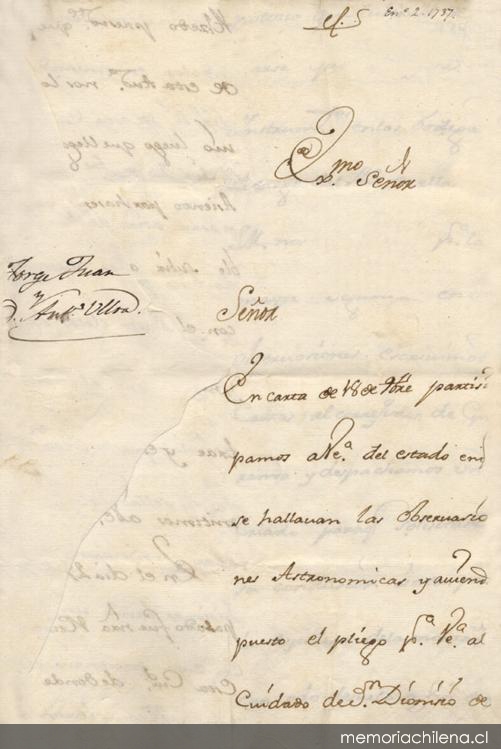 En.º 2 - 1737.
Ex.mo Señor
Jorge Juan
y
D. Ant.º Ulloa.
Señor
En carta de 18 de partisi
pamos a Ve.ª del estado en q
se hallavan las Observasio
nes Astronomicas y aviend
puesto el pliego p.ª Ve.ª al
Cuidado de D.n Dionisio de
memoriachilena.cl